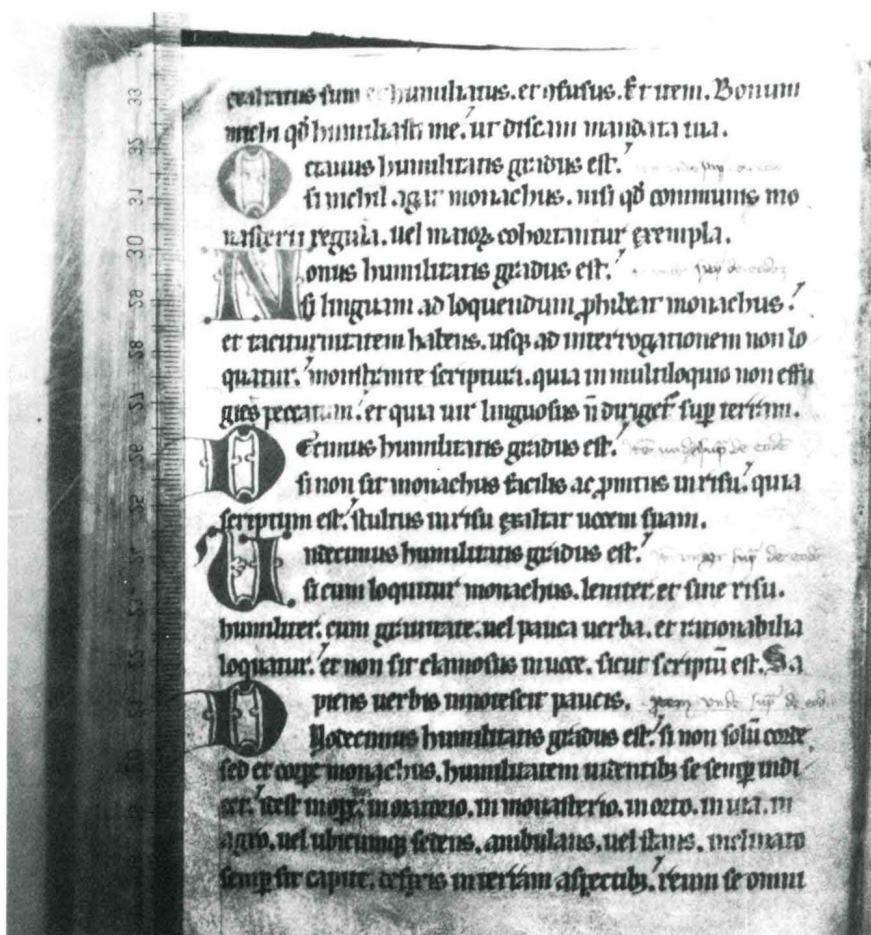 exaltatus sum et humiliatus. et ɔfusus. Et item. Bonum
michi qd̄ humiliasti me. ut discam mandata tua.
Octauus humilitatis gradus est.
si nichil agat monachus. nisi qd̄ communis mo
nasterii regula. uel maioꝝ cohortantur exempla.
Nonus humilitatis gradus est.
si linguam ad loquendum ꝓhibeat monachus.
et taciturnitatem habens. usq; ad interrogationem non lo
quatur. monstrante scriptura. quia in multiloquio non effu
gies peccatum. et quia uir linguosus n̄ dirigetꝰ sup terram.
Decimus humilitatis gradus est.
si non sit monachus facilis ac ꝓmtus in risu. quia
scriptum est. stultus in risu exaltat uocem suam.
Undecimus humilitatis gradus est.
si cum loquitur monachus. leniter. et sine risu.
humiliter. cum grauitate. uel pauca uerba. et rationabilia
loquatur. et non sit clamosus in uoce. sicut scriptū est. Sa
piens uerbis innotescit paucis.
Duodecimus humilitatis gradus est. si non solū corde
sed et corꝑe monachus. humilitatem uidentib; se semꝑ indi
cet. id est in oꝑe. in oratorio. in monasterio. in orto. in uia. in
agro. uel ubicumq; sedens. ambulans. uel stans. inclinato
semꝑ sit capite. defixis in terram aspectib;. reum se omni